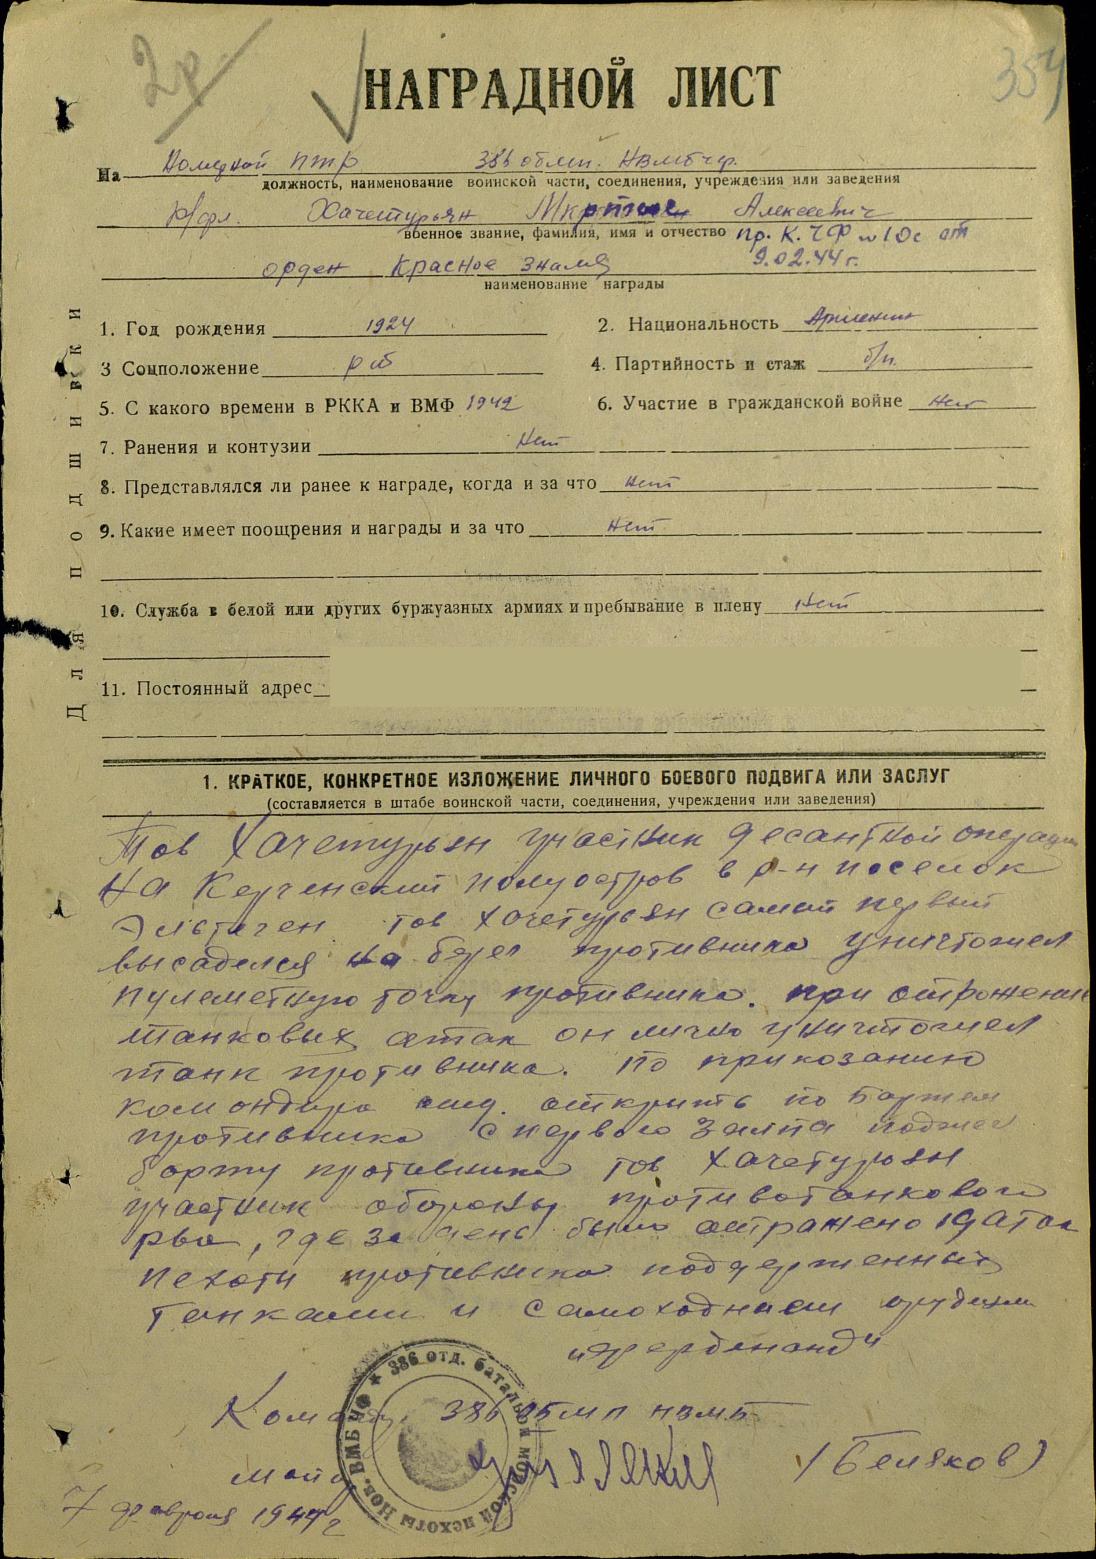 2 р
354
НАГРАДНОЙ ЛИСТ
На Номерной ПТР 386 обмп. НВМБ чф.
должность, наименование воинской части, соединения, учреждения или заведения
к/фл. Хачетурьян Мкртыч Алексеевич
военное звание, фамилия, имя и отчество пр. К. ЧФ № 10с от
орден Красное Знамя 9.02.44 г.
наименование награды
1. Год рождения 1924 2. Национальность Армянин
3 Соцположение раб 4. Партийность и стаж б/п.
5. С какого времени в РККА и ВМФ 1942 6. Участие в гражданской войне Нет
7. Ранения и контузии Нет
8. Представлялся ли ранее к награде, когда и за что нет
9. Какие имеет поощрения и награды и за что нет
10. Служба в белой или других буржуазных армиях и пребывание в плену Нет
11. Постоянный адрес
Для подшивки
1. КРАТКОЕ, КОНКРЕТНОЕ ИЗЛОЖЕНИЕ ЛИЧНОГО БОЕВОГО ПОДВИГА ИЛИ ЗАСЛУГ
(составляется в штабе воинской части, соединения, учреждения или заведения)
Тов Хачетурьян участник десантной операции
на Керченский полуостров в р-н поселок
Эльтиген тов Хачетурьян самый первый
высадился на берег противника уничтожил
пулеметную точку противника. при отрожение
танковых атак он лично уничтожил
танк противника. по приказанию
командира отд. открыть по баржам
противника с первого залпа поджег
баржу противника тов Хачетурьян
участник обороны противотанкового
рва, где за день было отражено 19 атак
пехоти противника поддерженных
танками и самоходными орудиями
"фердинанд"
Команд. 386 ОБМП НВМБ
майор (Беляков)
7 февраля 1944 г
386 отд. батальон морской пехоты Нов. ВМБ ЧФ